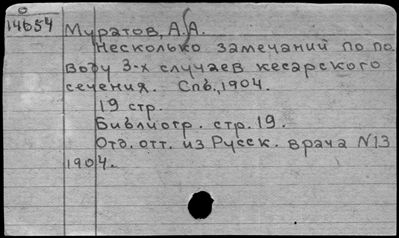 0
14654
Муратов, А.А.
Несколько замечаний по по
воду 3-х случаев кесарского
сечения. Спб., 1904.
19 стр.
Библиогр. стр. 19.
Отд. отт. из Русск. врача N13
1904.